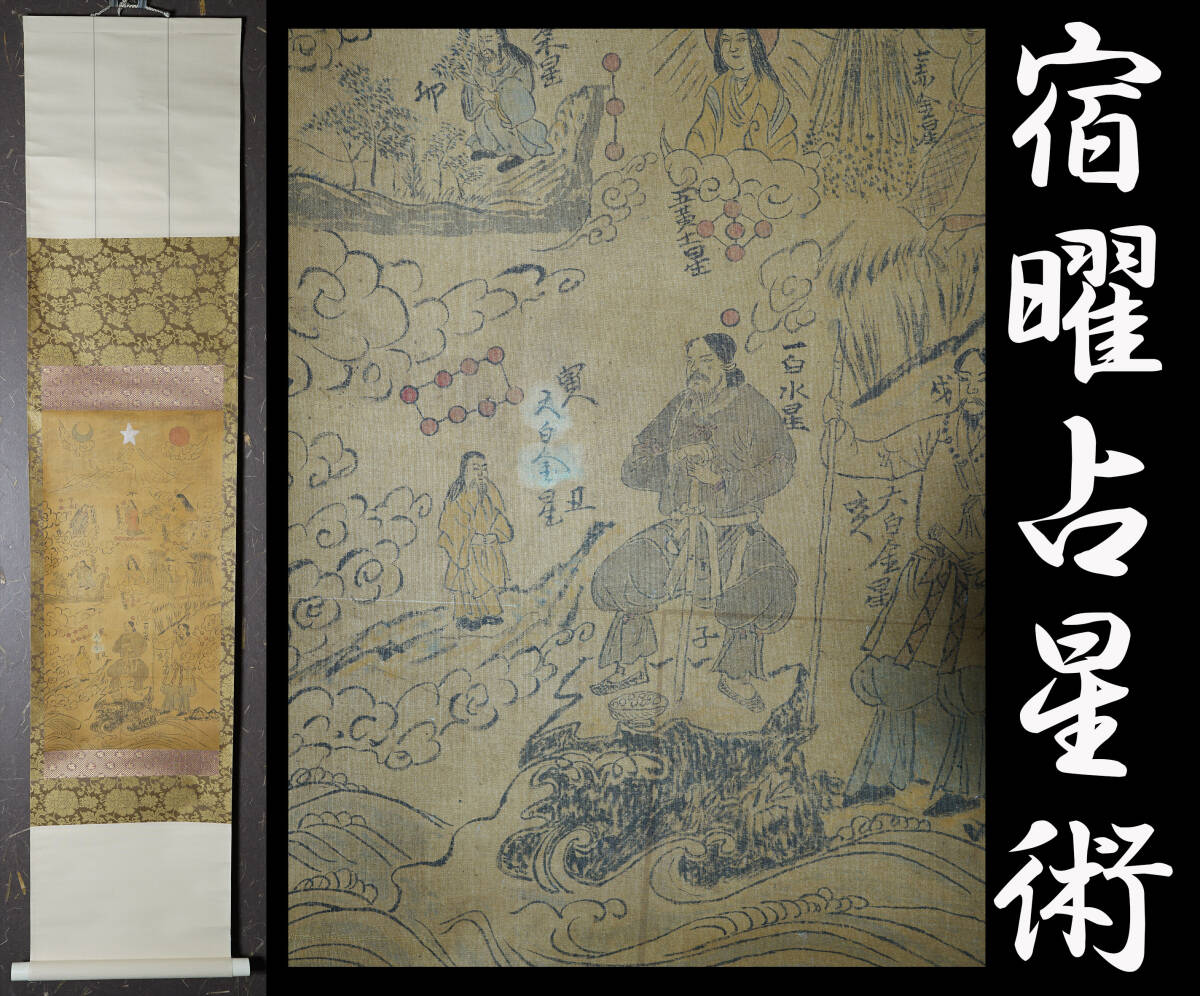 宿曜占星術
七赤金星
戌
大白金星
亥
一白水星
子
五黄土星
木星
卯
寅
天白金星
丑